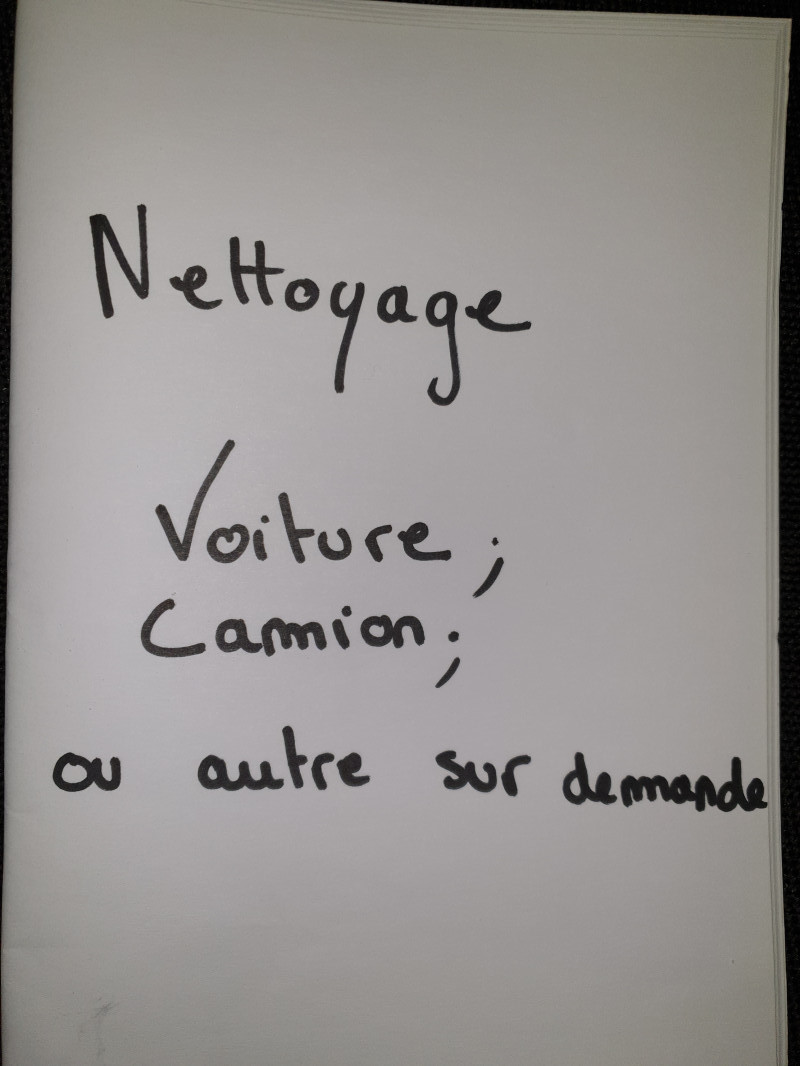 Nettoyage
Voiture ;
Camion ;
ou autre sur demande